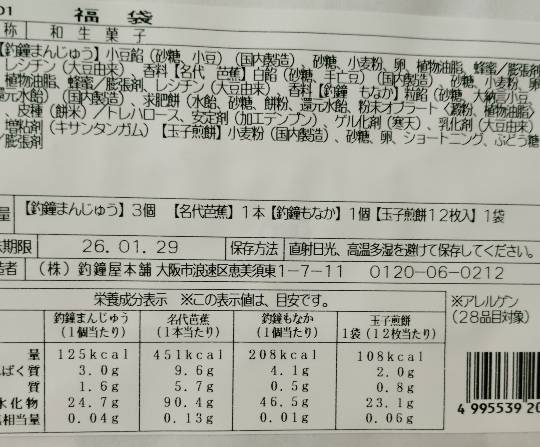 01 福袋
称 和生菓子
【釣鐘まんじゅう】小豆餡（砂糖、小豆）（国内製造）、砂糖、小麦粉、卵、植物油脂、蜂蜜／膨張剤
、レシチン（大豆由来）、香料【名代 芭蕉】白餡（砂糖、手亡豆）（国内製造）、砂糖、小麦粉、卵
、植物油脂、蜂蜜／膨張剤、レシチン（大豆由来）、香料【釣鐘 もなか】粒餡（砂糖、大納言小豆、
還元水飴）（国内製造）、求肥餅（水飴、砂糖、餅粉、還元水飴、粉末オブラート（澱粉、植物油脂）
、皮種（餅米）／トレハロース、安定剤（加工デンプン）、ゲル化剤（寒天）、乳化剤（大豆由来）
、増粘剤（キサンタンガム）【玉子煎餅】小麦粉（国内製造）、砂糖、卵、ショートニング、ぶどう糖
／膨張剤
量 【釣鐘まんじゅう】3個 【名代芭蕉】1本【釣鐘もなか】1個【玉子煎餅12枚入】1袋
期限 26.01.29 保存方法 直射日光、高温多湿を避けて保存してください。
造者 （株）釣鐘屋本舗 大阪市浪速区恵美須東1-7-11 0120-06-0212
栄養成分表示 ※この表示値は、目安です。 ※アレルゲン
釣鐘まんじゅう 名代芭蕉 釣鐘もなか 玉子煎餅 （28品目対象）
（1個当たり） （1本当たり） （1個当たり） 1袋（12枚当たり）
量 125kcal 451kcal 208kcal 108kcal
ぱく質 3.0g 9.6g 4.1g 2.0g
質 1.6g 5.7g 0.5g 0.8g
水化物 24.7g 90.4g 46.5g 23.1g
相当量 0.04g 0.13g 0.01g 0.06g
4 995539 20